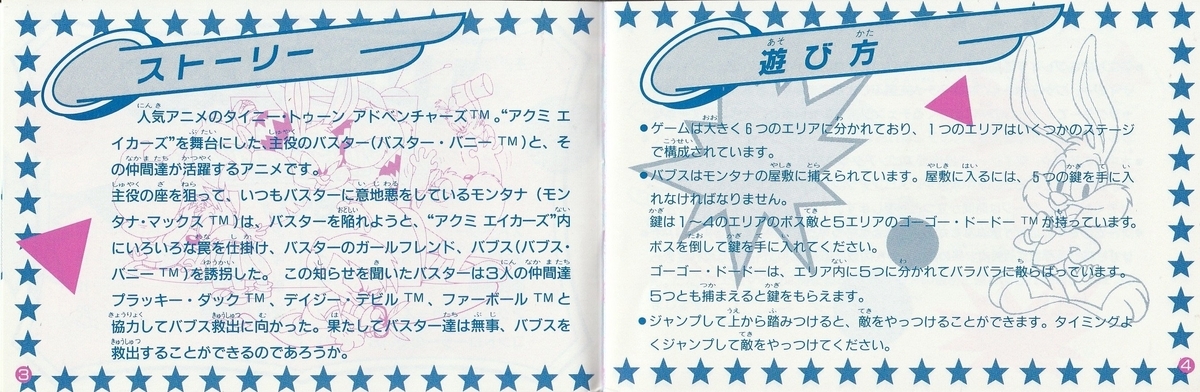 ストーリー
人気アニメのタイニー・トゥーン アドベンチャーズTM。“アクミ エ
イカーズ”を舞台にした、主役のバスター(バスター・バニー TM)と、そ
の仲間達が活躍するアニメです。
主役の座を狙って、いつもバスターに意地悪をしているモンタナ(モン
タナ・マックス TM)は、バスターを陥れようと、“アクミ エイカーズ”内
にいろいろな罠を仕掛け、バスターのガールフレンド、バブス(バブス・
バニー TM)を誘拐した。 この知らせを聞いたバスターは3人の仲間達
プラッキー・ダック TM、デイジー・デビル TM、ファーボール TMと
協力してバブス救出に向かった。果たしてバスター達は無事、バブスを
救出することができるのであろうか。
3
遊び方
●ゲームは大きく6つのエリアに分かれており、1つのエリアはいくつかのステージ
で構成されています。
●バブスはモンタナの屋敷に捕えられています。屋敷に入るには、5つの鍵を手に入
れなければなりません。
鍵は1〜4のエリアのボス敵と5エリアのゴーゴー・ドードー TMが持っています。
ボスを倒して鍵を手に入れてください。
ゴーゴー・ドードーは、エリア内に5つに分かれてバラバラに散らばっています。
5つとも捕まえると鍵をもらえます。
●ジャンプして上から踏みつけると、敵をやっつけることができます。タイミングよ
くジャンプして敵をやっつけてください。
4